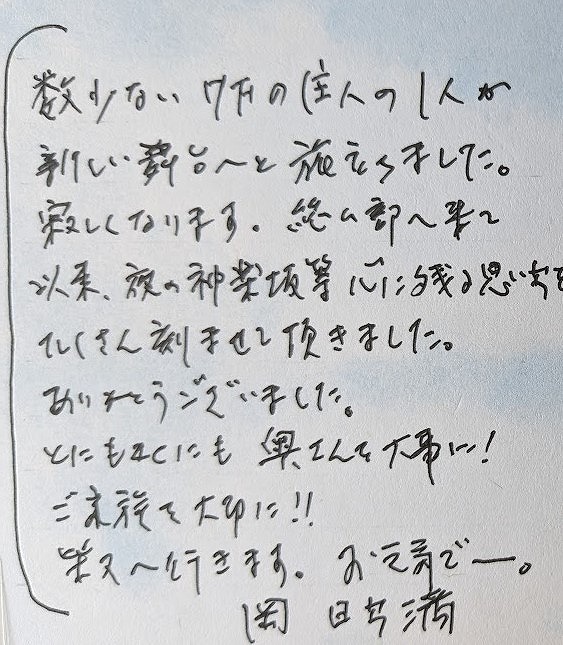 数少ない7Fの住人の1人が
新しい舞台へと旅立ちました。
寂しくなります。総務部へ来て
以来、夜の神楽坂等心に残る思い出を
たくさん刻ませて頂きました。
ありがとうございました。
とにもかくにも奥さんを大事に!
ご家族を大切に!!
柴又へ行きます。お元気でー。
岡